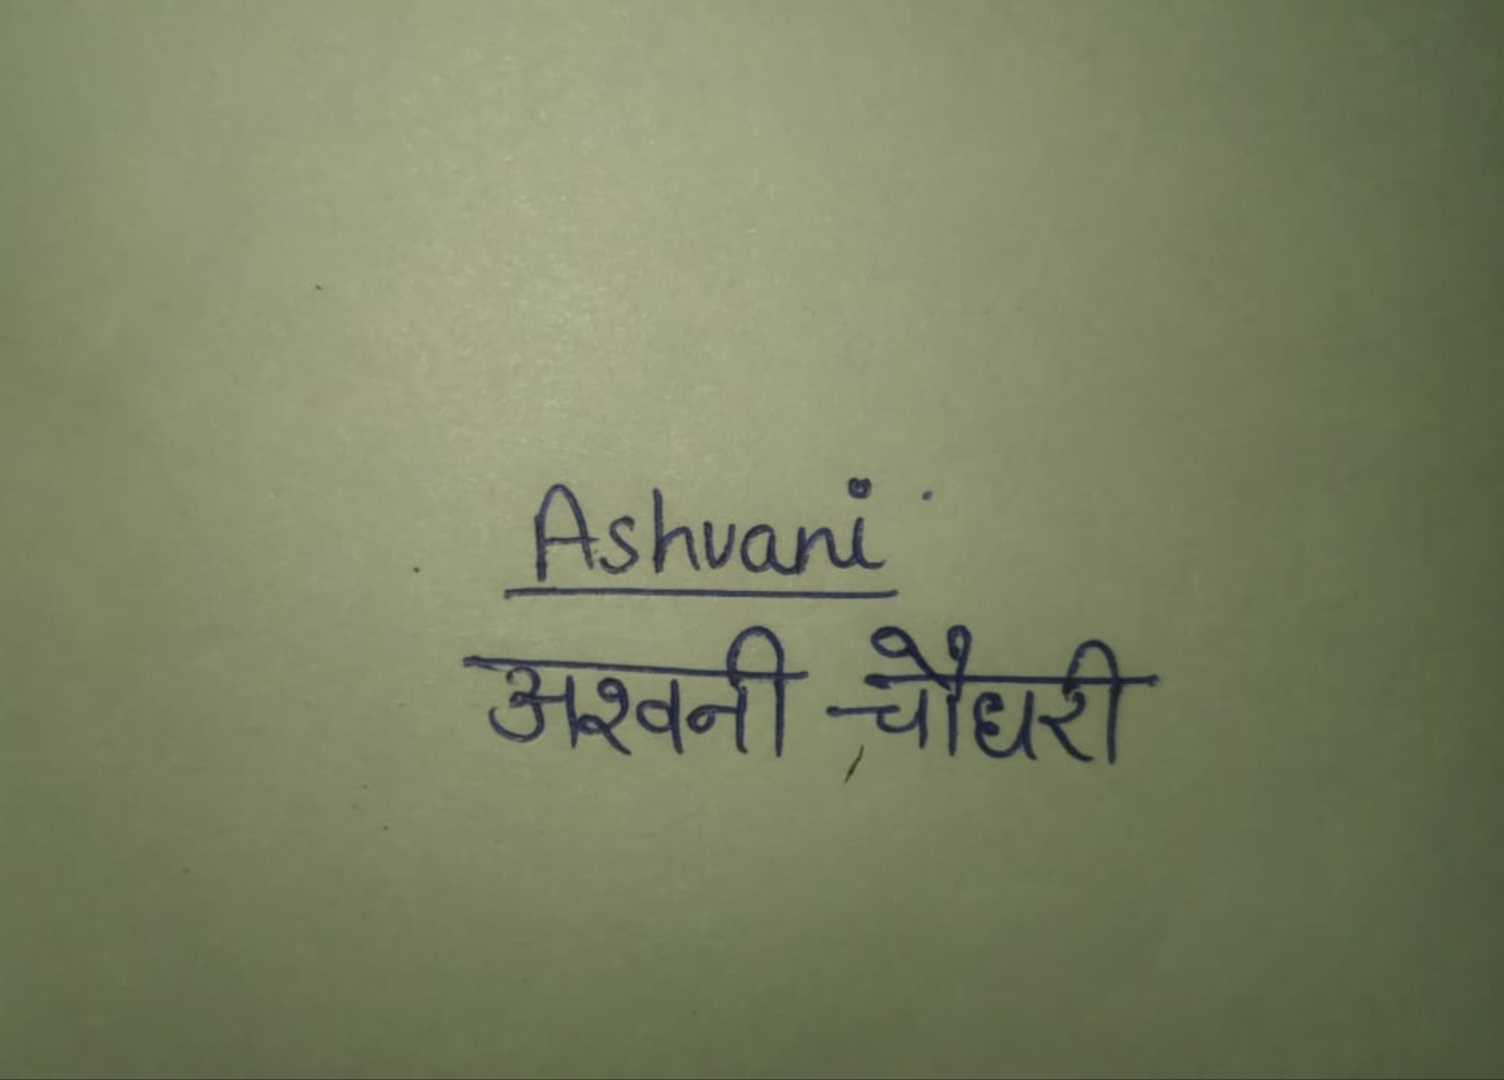 Ashvani
अश्वनी चौधरी